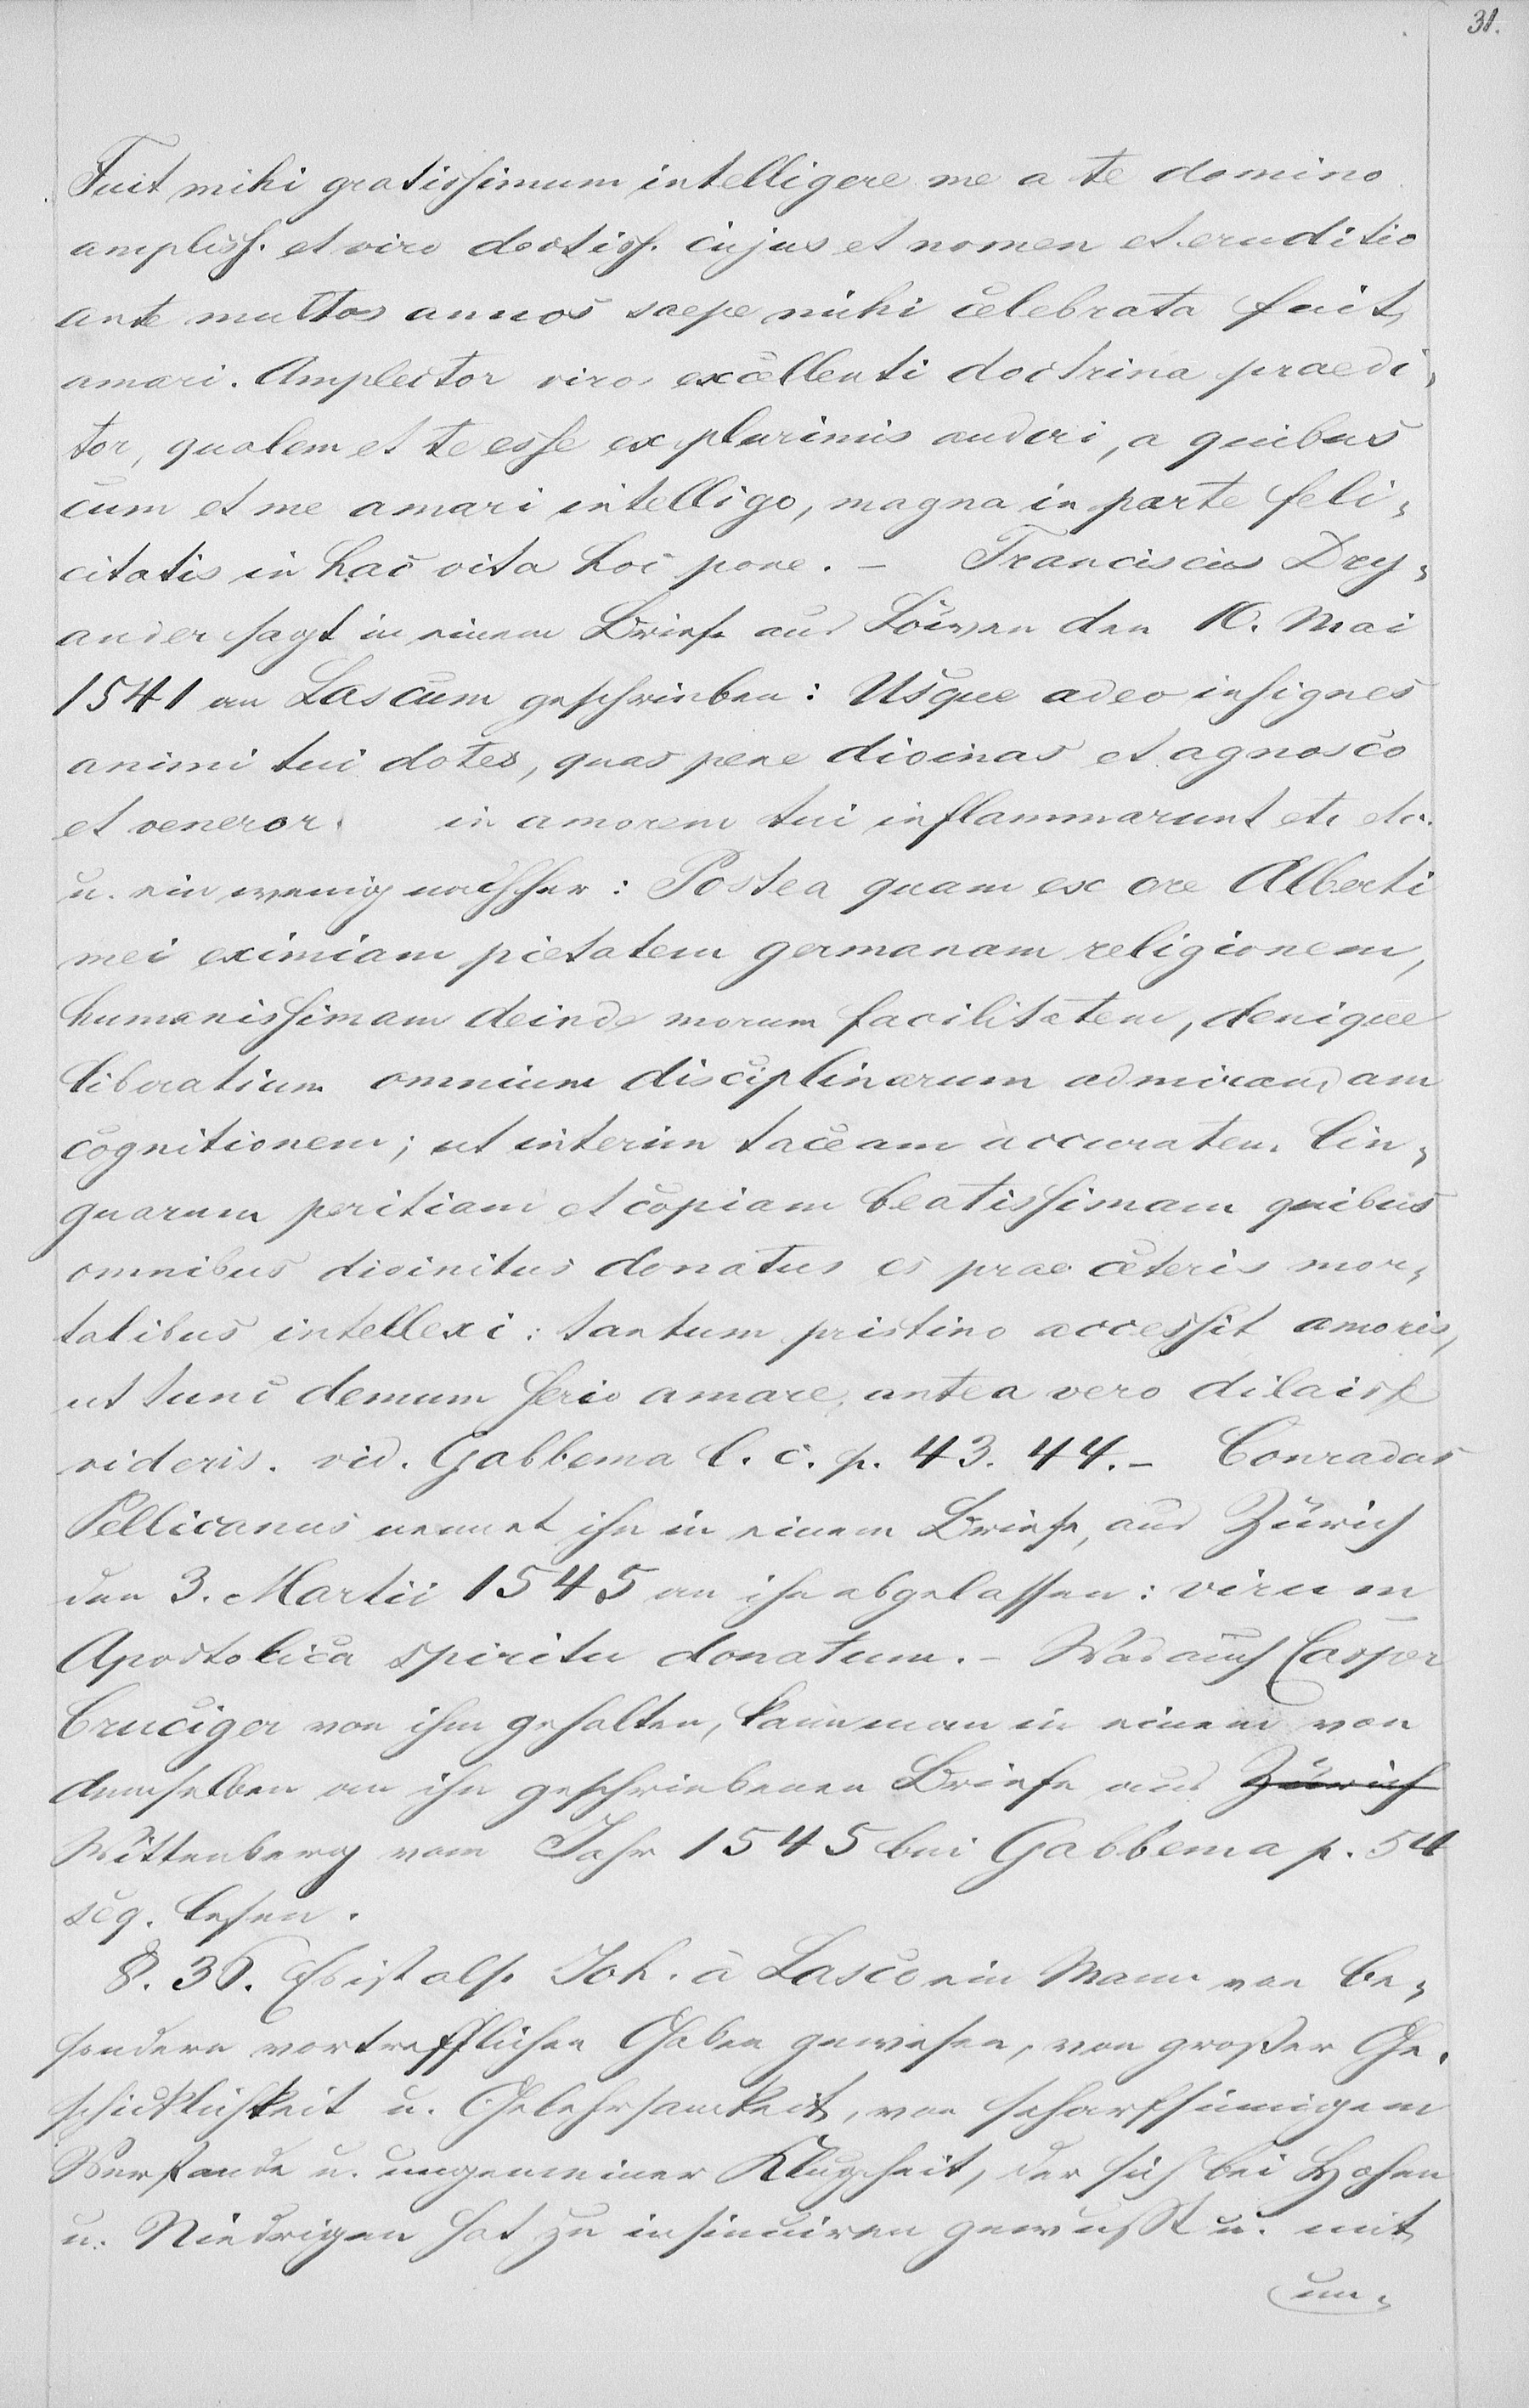 31.
Fuit mihi gratissimum intelligere me a te domino
ampliss. et viro doctiss. cujus et nomen et eruditio
ante multos annos saepe mihi celebrata fuit,
amari. Amplector viros excellenti doctrina praedi„
tor, qualem et te esse ex plurimis audivi, a quibus
cum et me amari intelligo, magna in parte feli„
citatis in hac vita hoc pone. – Franciscus Dry„
ander sagt in einem Briefe aus Löwen den 10. Mai
1541 an Lascum geschrieben: Usque adeo insignes
animi tui dotes, quas pene divinas et agnosco
et veneror. in amorem tui inflammarunt etc etc.
u. ein wenig nachher: Postea quam ex ore Alberti
mei eximiam pietatem germanam religionem,
humanissimam deinde morum facilitatem, denique
liberalium omnium disciplinarum admirandam
cognitionem; ut interim taceam accuratem lin„
guarum peritiam et copiam beatissimam quibus
omnibus divinitus donatus es prae ceteris mor„
talibus intellexi: tantum pristino accessit amoris,
ut tunc demum serio amare, antea vero dilaisse
videris. vid. Gabbema l. c. p. 43. 44. – Conradus
Pellicanus nennet ihn in einem Briefe, aus Zürich
den 3. Martii 1545 an ihn abgelassen: virum
Apostolica spiritu donatum. – Was auch Caspar
Cruciger von ihm gehalten, kann man in einem von
demselben an ihn geschriebenen Briefe aus Zürich
Wittenberg vom Jahr 1545 bei Gabbema p. 54
seq. lesen.
§. 36. Es ist also Joh. à Lasco ein Mann von be„
sondern vortrefflichen Gaben gewesen, von großer Ge„
schicklichkeit u. Gelehrsamkeit, von scharfsinnigem
Verstande u. ungemeiner Klugheit, der sich bei Hohen
u. Niedrigen hat zu insinuiren gewußt u. mit
um„